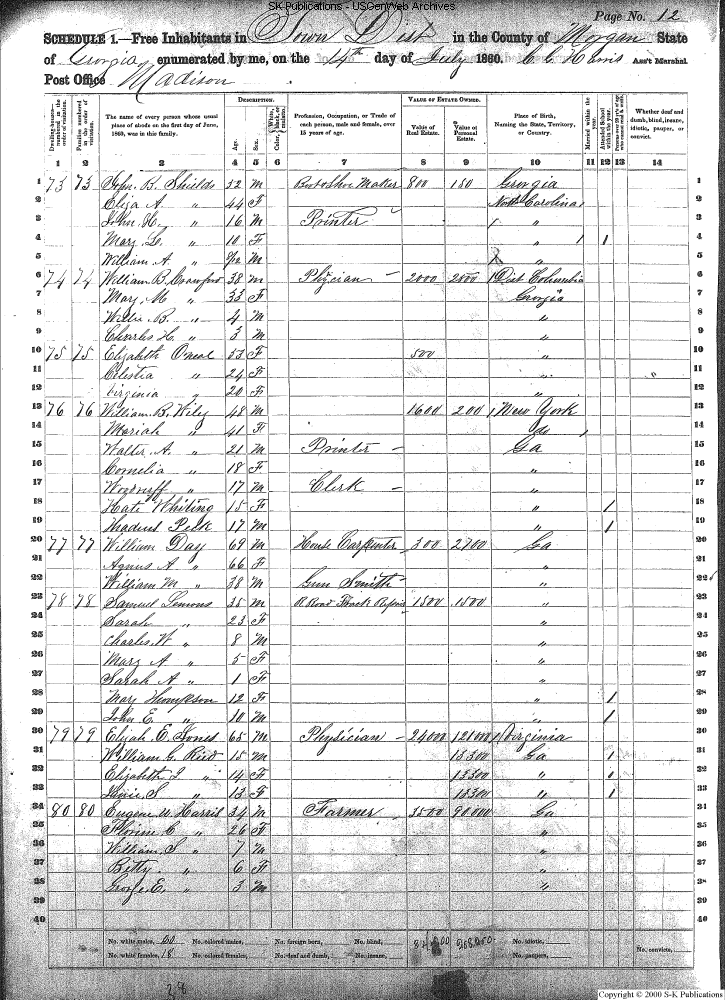 SK Publications - USGenWeb Archives
Page No. 12
SCHEDULE 1.—Free Inhabitants in Town Dist in the County of Morgan State
of Georgia enumerated by me, on the 14th day of July 1860. C C Harris Ass't Marshal
Post Office Madison
Dwelling-houses—numbered in the order of visitation.
Families numbered in the order of visitation.
The name of every person whose usual place of abode on the first day of June, 1860, was in this family.
DESCRIPTION.
Age.
Sex.
Color, White, black, or mulatto.
Profession, Occupation, or Trade of each person, male and female, over 15 years of age.
VALUE OF ESTATE OWNED.
Value of Real Estate.
Value of Personal Estate.
Place of Birth, Naming the State, Territory, or Country.
Married within the year.
Attended School within the year.
Whether deaf and dumb, blind, insane, idiotic, pauper, or convict.
1 2 3 4 5 6 7 8 9 10 11 12 13 14
1 73 73 John B. Shields 52 M Boot & Shoe Maker 800 150 Georgia 1
2 Eliza A " 44 F North Carolina 2
3 John H. " 16 M Printer " 3
4 Mary " 10 F " / 1 4
5 William A " M " 5
6 74 74 William B. Crawford 38 M Phycian 2000 2500 1 Dist Columbia 6
7 Mary M " 33 F Georgia 7
8 Willie B. " 4 M " 8
9 Charles H. " 3 M " 9
10 75 75 Elizabeth Oneal 53 F 500 " 10
11 Celestia " 24 F " 11
12 Virginia " 20 F " 12
13 76 76 William B. Wily 48 M 1600 200 1 New York 13
14 Mariah " 41 F do 14
15 Walter A. " 21 M Printer Ga 15
16 Cornelia " 18 F " 16
17 Woodruff " 17 M Clerk " 17
18 Kate Whiting 15 F " 1 18
19 Peck 17 M " 1 19
20 77 77 William Day 69 M House Carpenter 300 2700 Ga 20
21 Agnus A " 66 F " 21
22 William M " 38 M Gun Smith " 22
23 78 78 Samuel Lemons 35 M R. Road Track 1500 1500 " 23
24 Sarah " 23 F " 24
25 Charles W " 8 M " 25
26 Mary A " 5 F " 26
27 Sarah A " 1 F " 27
28 Mary Thompkson 12 F " 1 28
29 John E. " 10 M " 1 29
30 79 79 Elijah E. Jones 65 M Physician 24000 121000 1 Virginia 30
31 William G. Reid 15 M 13300 Ga 1 31
32 Elizabeth J " 14 F 13300 " 1 32
33 Janie S " 13 F 13300 " 1 33
34 80 80 Eugene W Harris 34 M Farmer 3500 90000 Ga 34
35 Florine C " 26 F " 35
36 William S " 7 M " 36
37 Betty " 6 F " 37
38 George E. " 3 M " 38
39 39
40 40
No. white males, 20 No. colored males, No. foreign born, No. blind, 268,050 No. idiotic, No. convicts,
No. white females, 18 No. colored females, No. deaf and dumb, No. insane, No. paupers,
28
Copyright © 2000 S-K Publications